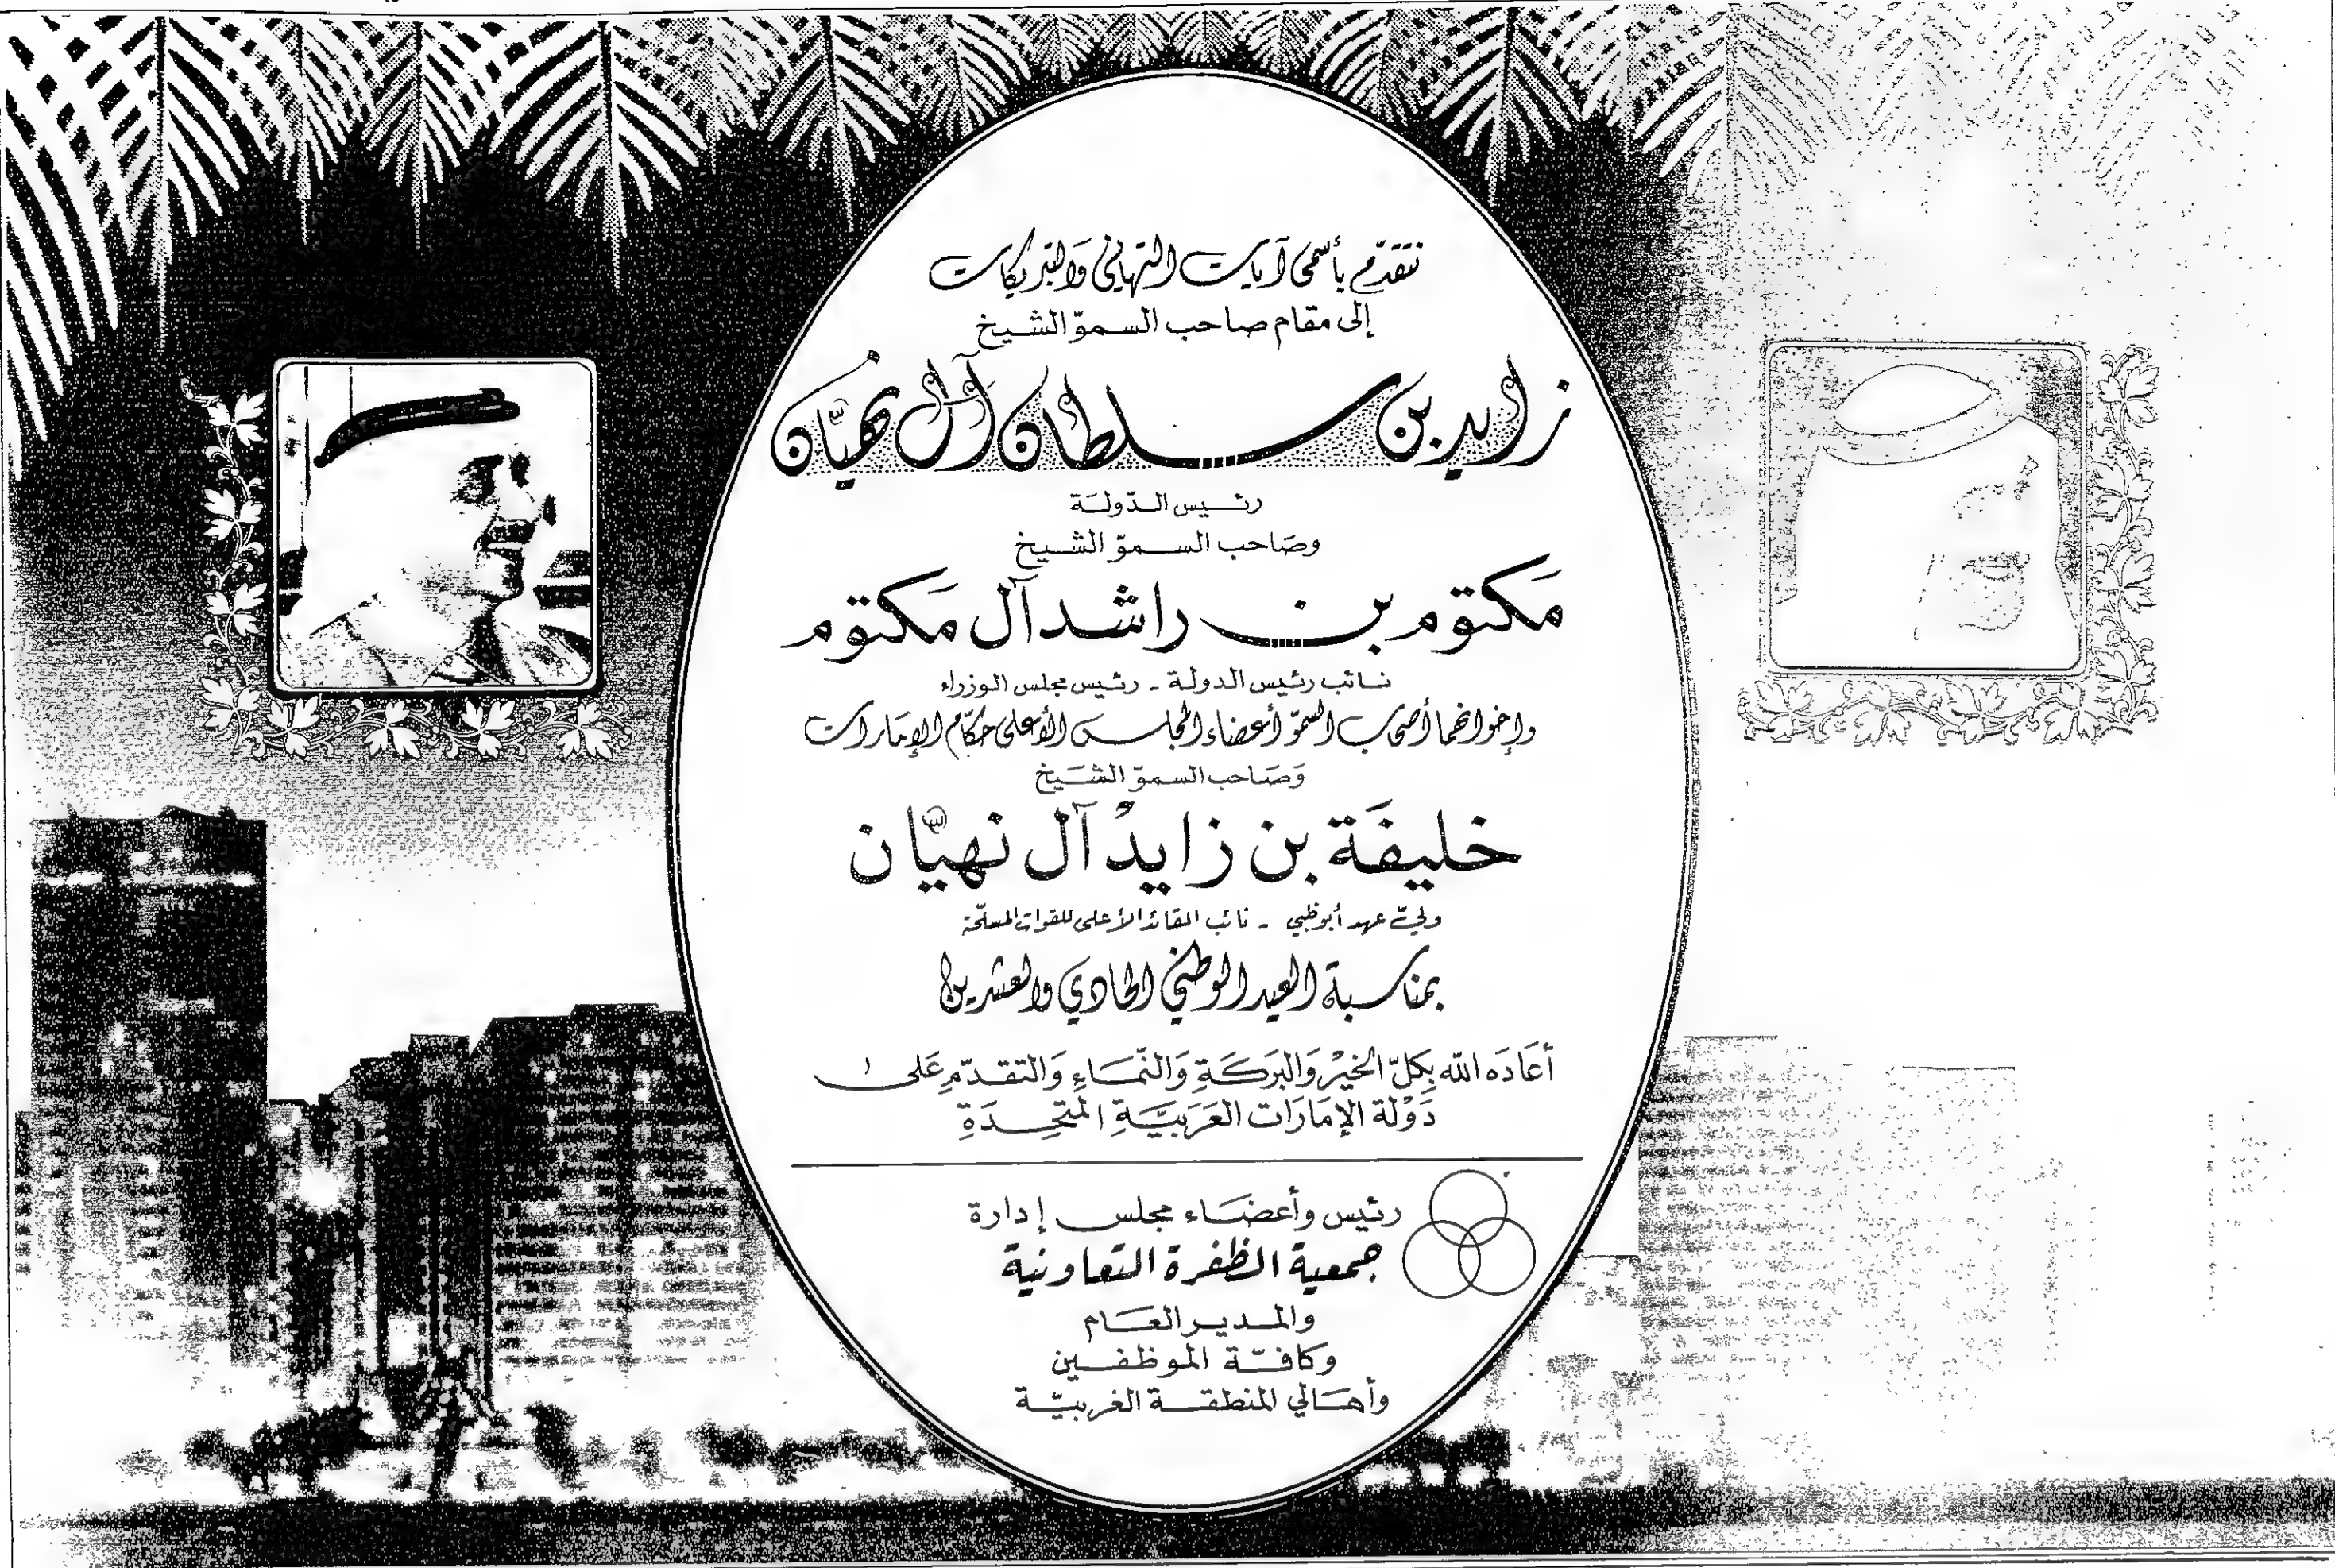 نتقدّم بأسمى آيات التهاني والتبريكات
إلى مقام صاحب السموّ الشيخ
زايد بن سلطان آل نهيّان
رئيس الدّولة
وصَاحب السموّ الشيخ
مَكتوم بن راشد آل مَكتوم
نائب رئيس الدولة - رئيس مجلس الوزراء
وإخوانهما أصحاب السموّ أعضاء المجلس الأعلى حكّام الإمَارات
وَصَاحب السموّ الشَيخ
خليفَة بن زايدْ آل نهيّان
وليّ عهد أبوظبي - نائب القائد الأعلى للقوات المسلّحة
بمناسبة العيد الوطني الحادي والعشرين
أعَادَه الله بِكلّ الخيْر وَالبَركَةِ وَالنّمَاءِ وَالتقدّمِ عَلى
دَوْلة الإمَارَات العَرَبيَّةِ المتّحِدَةِ
رئيس وأعضَاء مجلس إدارة
جمعية الظفرة التعاونية
والمدير العَام
وكافّة الموظفين
وأهَالي المنطقة الغربيّة